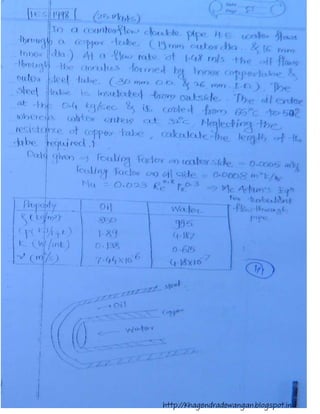 IES 1998 (25 Marks)
In a counterflow double pipe H.E water flows
through a copper tube (19mm outer dia & 16 mm
inner dia) At a flow rate of 1.48 m/s. The oil flows
through the annulus formed by inner copper tube &
outer steel tube (30 mm O.D & 26 mm I.D). The
steel tube is insulated from outside. The oil enters
at the 0.4 kg/sec & is cooled from 65°C to 50°C
whereas water enters at 32°C. Neglecting the
resistance of copper tube, calculate the length of the
tube required?
Data given → Fouling Factor on water side = 0.0005
Fouling Factor on oil side = 0.0008 m²k/w
Nu = 0.023 Re Pr^0.3 → Mc Adam's Eqn
For turbulent
flow through
pipe
Property Oil Water
(kg/m³) 850 995
Cp 1.89 4.187
K (W/mk) 0.138 0.615
ν (m²/s) 7.44×10⁻⁶ 4.18×10⁻⁷
steel
Oil
copper
Water
http://khagendradewangan.blogspot.in